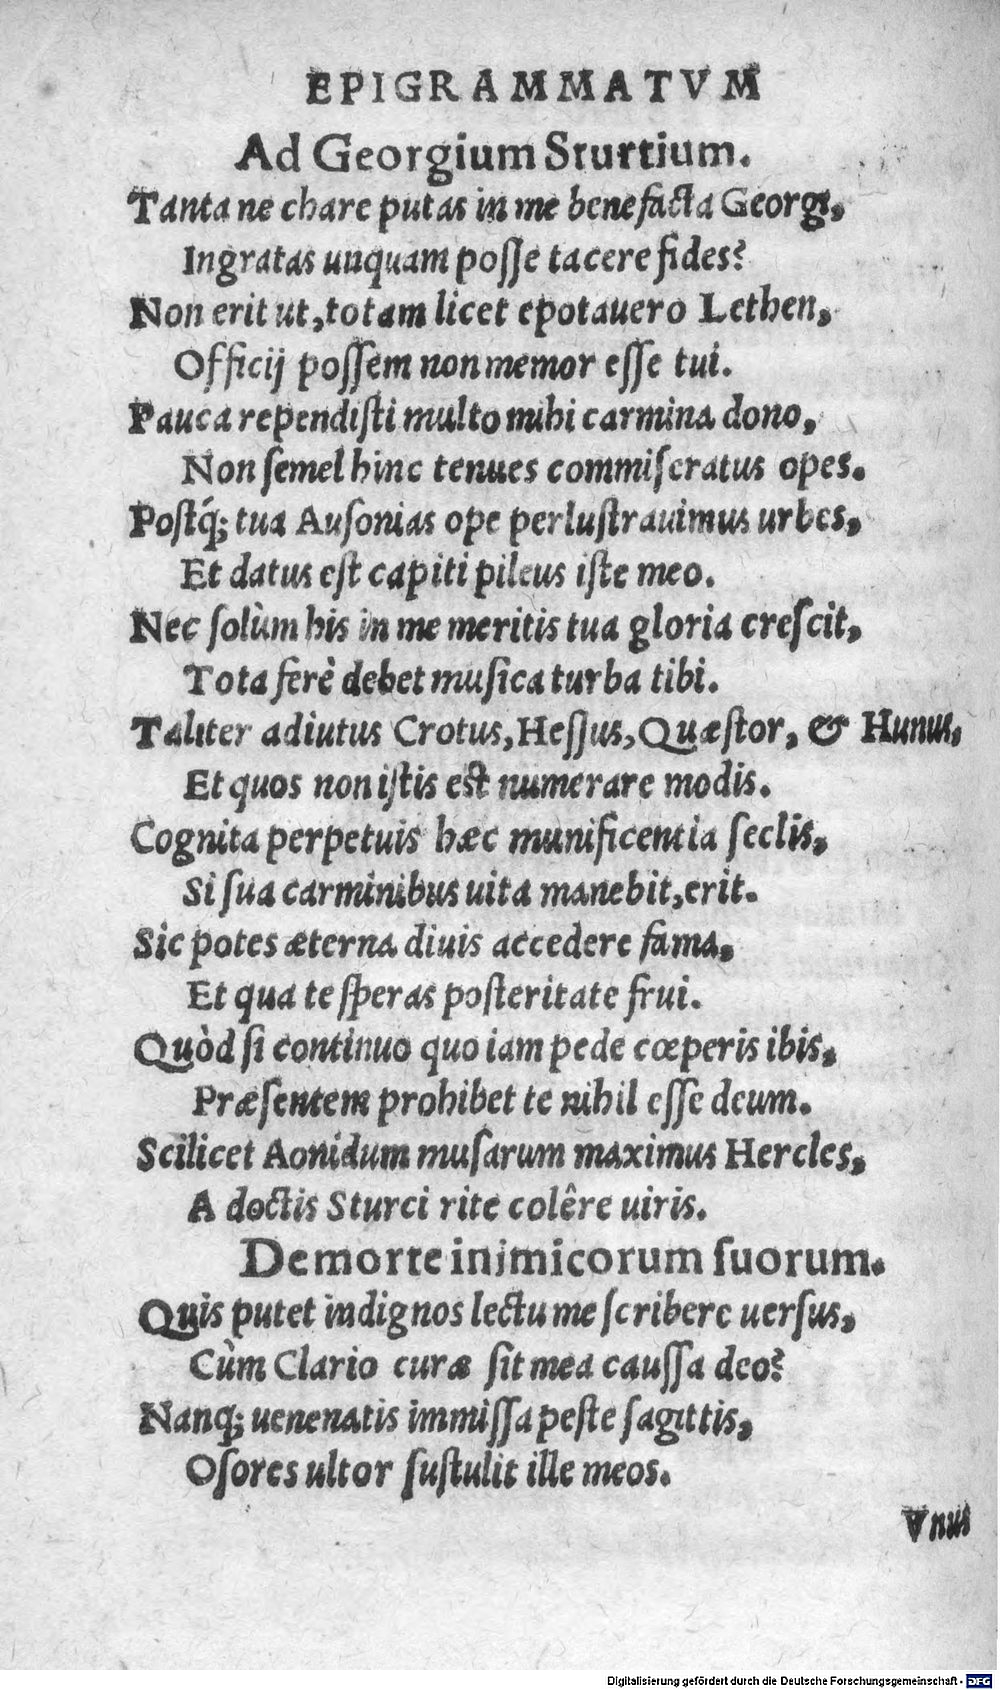 EPIGRAMMATVM
Ad Georgium Sturtium.
Tanta ne chare putas in me benefacta Georgi,
Ingratas unquam posse tacere fides?
Non erit ut, totam licet epotauero Lethen,
Officij possem non memor esse tui.
Pauca rependisti multo mihi carmina dono,
Non semel hinc tenues commiseratus opes.
Postq́; tua Ausonias ope perlustrauimus urbes,
Et datus est capiti pileus iste meo.
Nec solùm his in me meritis tua gloria crescit,
Tota ferè debet musica turba tibi.
Taliter adiutus Crotus, Hessus, Quæstor, & Hunus,
Et quos non istis est numerare modis.
Cognita perpetuis hæc munificentia seclis,
Si sua carminibus uita manebit, erit.
Sic potes æterna diuis accedere fama,
Et qua te speras posteritate frui.
Quòd si continuo quo iam pede cœperis ibis,
Præsentem prohibet te nihil esse deum.
Scilicet Aonidum musarum maximus Hercles,
A doctis Sturci rite colêre uiris.
De morte inimicorum suorum.
Quis putet indignos lectu me scribere uersus,
Cùm Clario curæ sit mea caussa deo?
Nanq; uenenatis immissa peste sagittis,
Osores ultor sustulit ille meos.
Vnus
Digitalisierung gefördert durch die Deutsche Forschungsgemeinschaft - DFG